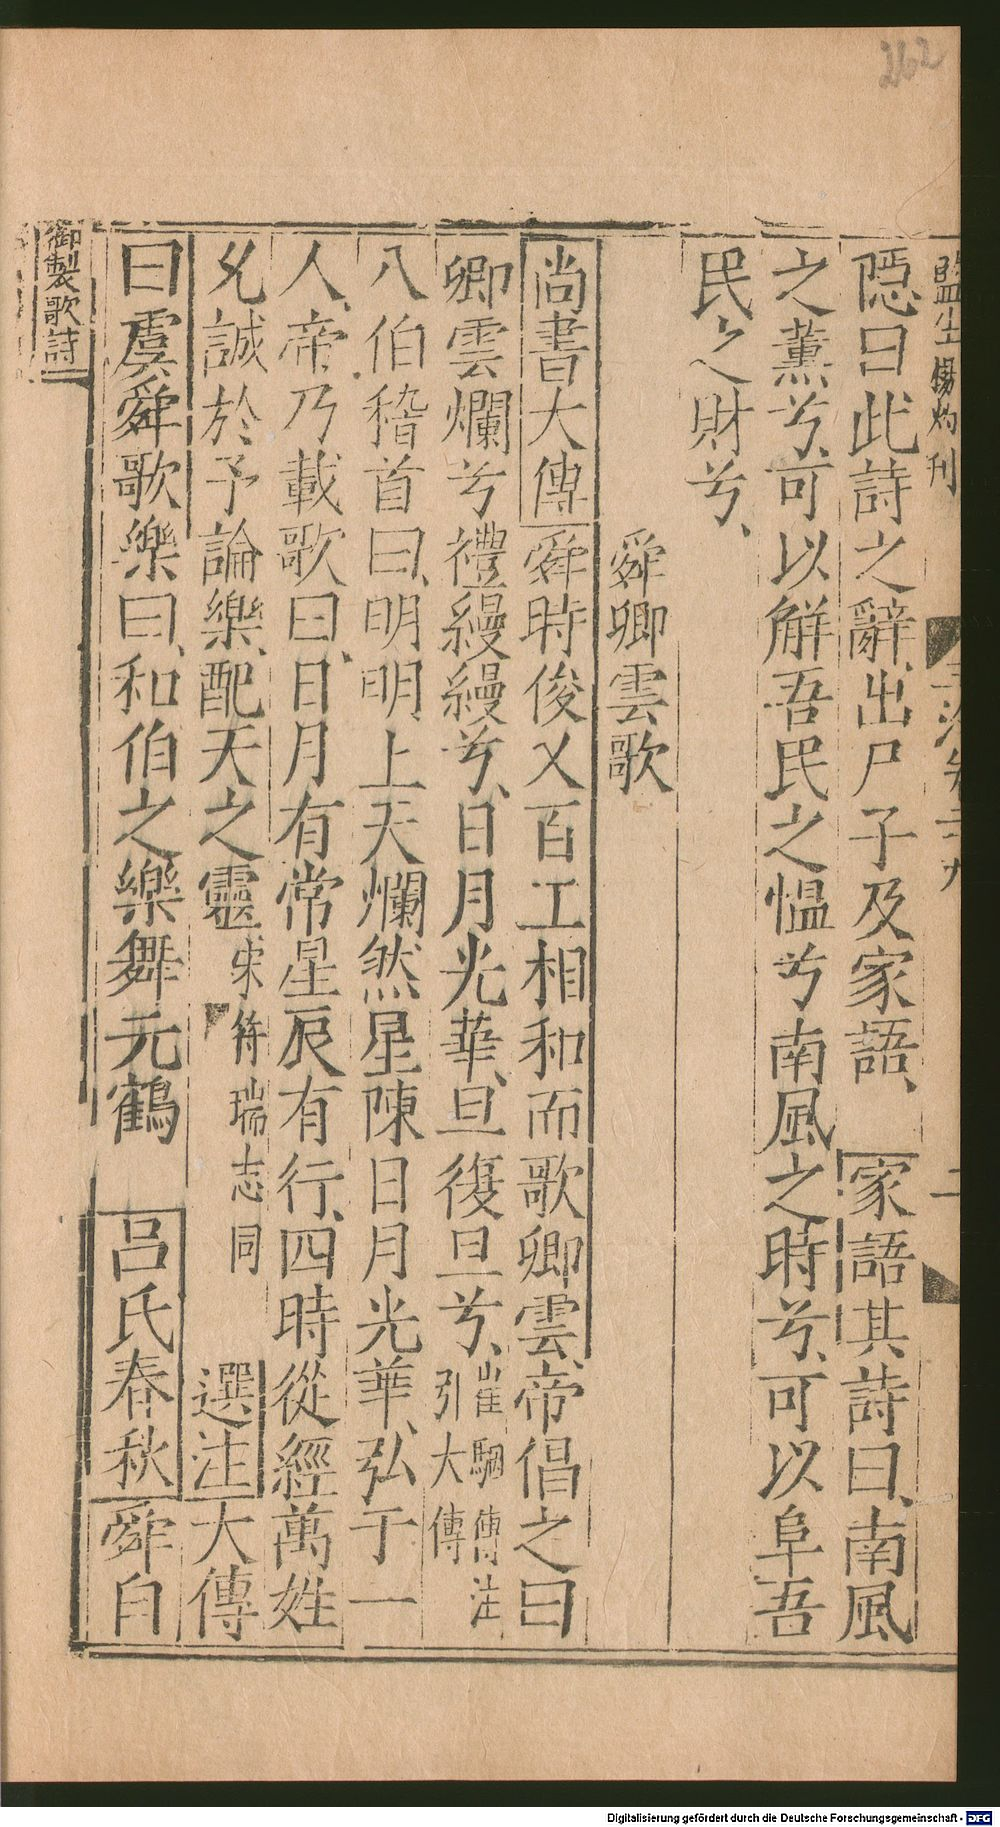 262
監生楊灼刊
隠曰此詩之辭、出尸子及家語、家語其詩曰、南風
之薫兮、可以解吾民之慍兮南風之時兮、可以阜吾
民之財兮、
舜卿雲歌
尚書大傳舜時俊乂百工相和而歌卿雲、帝倡之曰
卿雲爛兮禮縵縵兮、日月光華、旦復旦兮、崔駰傳注
引大傳
八伯稽首曰、明明上天爛然星陳日月光華、弘于一
人、帝乃載歌曰、日月有常星辰有行、四時從經萬姓
允誠於予論樂、配天之靈宋符瑞志同 選注大傳
曰虞舜歌樂曰、和伯之樂舞元鶴 呂氏春秋舜自
御製歌詩
Digitalisierung gefördert durch die Deutsche Forschungsgemeinschaft - DFG